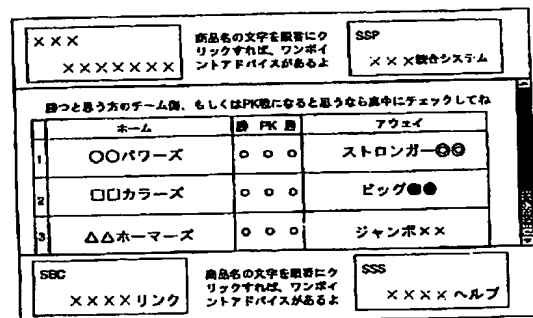 ×××
×××××××
商品名の文字を順番にク
リックすれば、ワンポイ
ントアドバイスがあるよ
SSP
×××統合システム
勝つと思う方のチーム側、もしくはPK戦になると思うなら真中にチェックしてね
ホーム 勝 PK 勝 アウェイ
1 ○○パワーズ ○ ○ ○ ストロンガー◎◎
2 □□カラーズ ○ ○ ○ ビッグ●●
3 △△ホーマーズ ○ ○ ○ ジャンボ××
SBC
××××リンク
商品名の文字を順番にク
リックすれば、ワンポイ
ントアドバイスがあるよ
SSS
××××ヘルプ